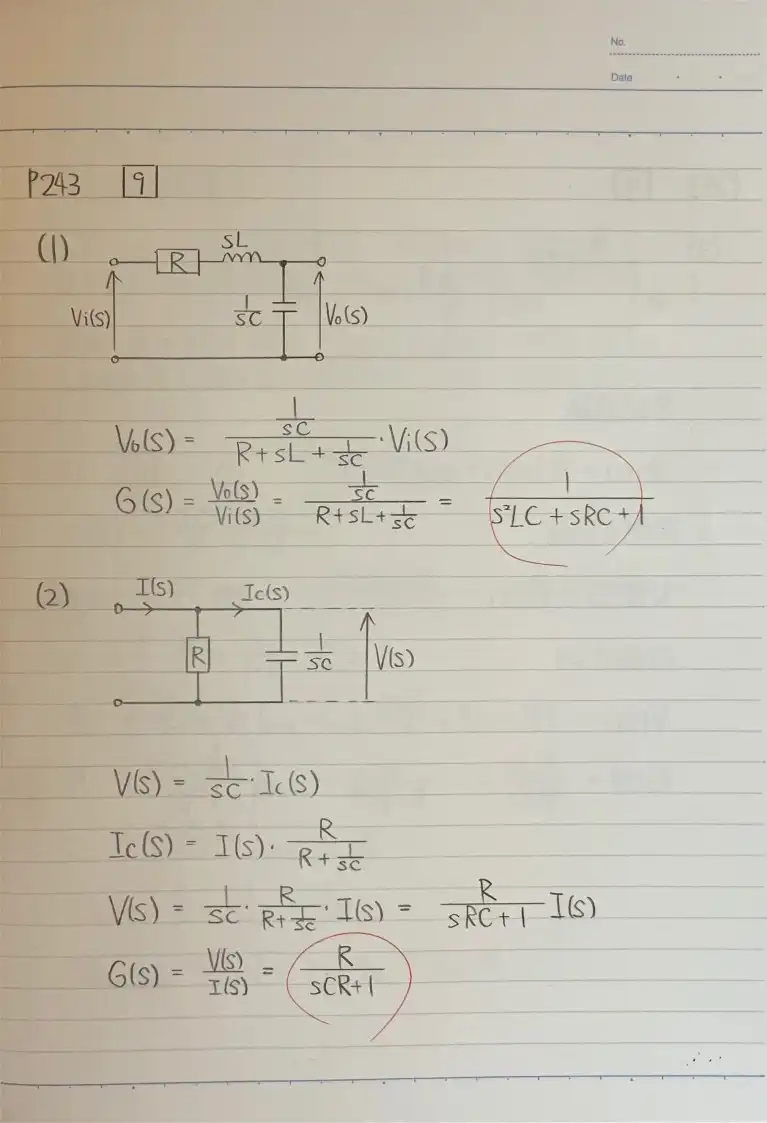 No.
Date
P243 9
(1)
sL
R
Vi(s) 1/sC Vo(s)
Vo(s) = (1/sC)/(R + sL + 1/sC) · Vi(s)
G(s) = Vo(s)/Vi(s) = (1/sC)/(R + sL + 1/sC) = 1/(s²LC + sRC + 1)
(2) I(s) Ic(s)
R 1/sC V(s)
V(s) = 1/sC · Ic(s)
Ic(s) = I(s) · R/(R + 1/sC)
V(s) = 1/sC · R/(R + 1/sC) · I(s) = R/(sRC + 1) I(s)
G(s) = V(s)/I(s) = R/(sCR + 1)